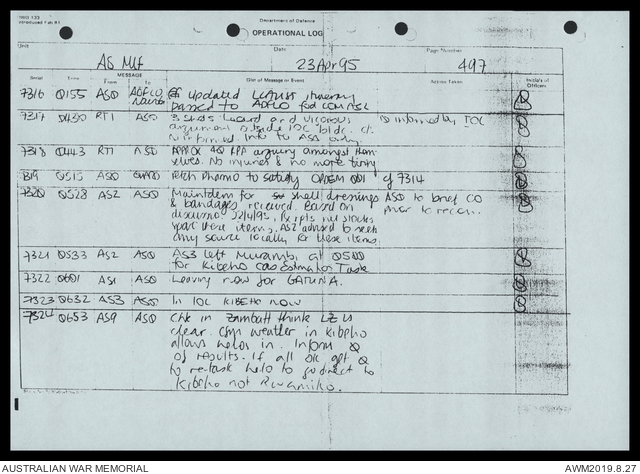 IWD 133
Introduced Feb 81
Department of Defence
OPERATIONAL LOG
Unit
AS MSF
Date
23 Apr 95
Page Number
497
Serial
Time
MESSAGE
From
To
Gist of Message or Event
Action Taken
Initials of Officers
7316 0155 ASO updated itinerary
passed to AGFLO for
7317 0430 RTI ASO 3 shots heard and vicorous
argument outside IOC bldg.
info to ASO
informed by IOC
7318 0443 RTI ASO APPROX 40 RPA arguing amongst them-
selves. No injuries & no more firing
7319 0515 ASO to satisfy OPDEM 001 of 7314
7320 0528 AS2 ASO for shell dressings
& bandages received. Based on
these items. AS2 advised to seek
any source locally for these items.
ASO to brief CO
prior to recon.
7321 0533 AS2 ASO AS3 left Murambi at 0500
for Kibeho Cas Estimation Task
7322 0601 AS1 ASO Leaving now for GATUNA.
7323 0632 AS3 ASO In IOC KIBEHO now
7324 0653 AS9 ASO Chk in Zambatt think LZ is
clear. Cfm weather in Kibeho
allows helos in. Inform
of results. If all ok
to re-task helo to go direct to
Kibeho not Rwamiko.
AUSTRALIAN WAR MEMORIAL
AWM2019.8.27